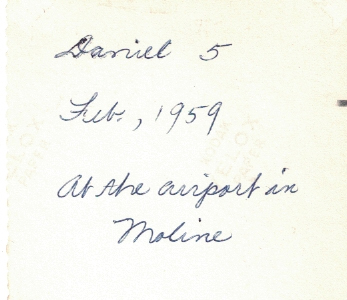 Daniel 5
Feb., 1959
At the airport in
Moline